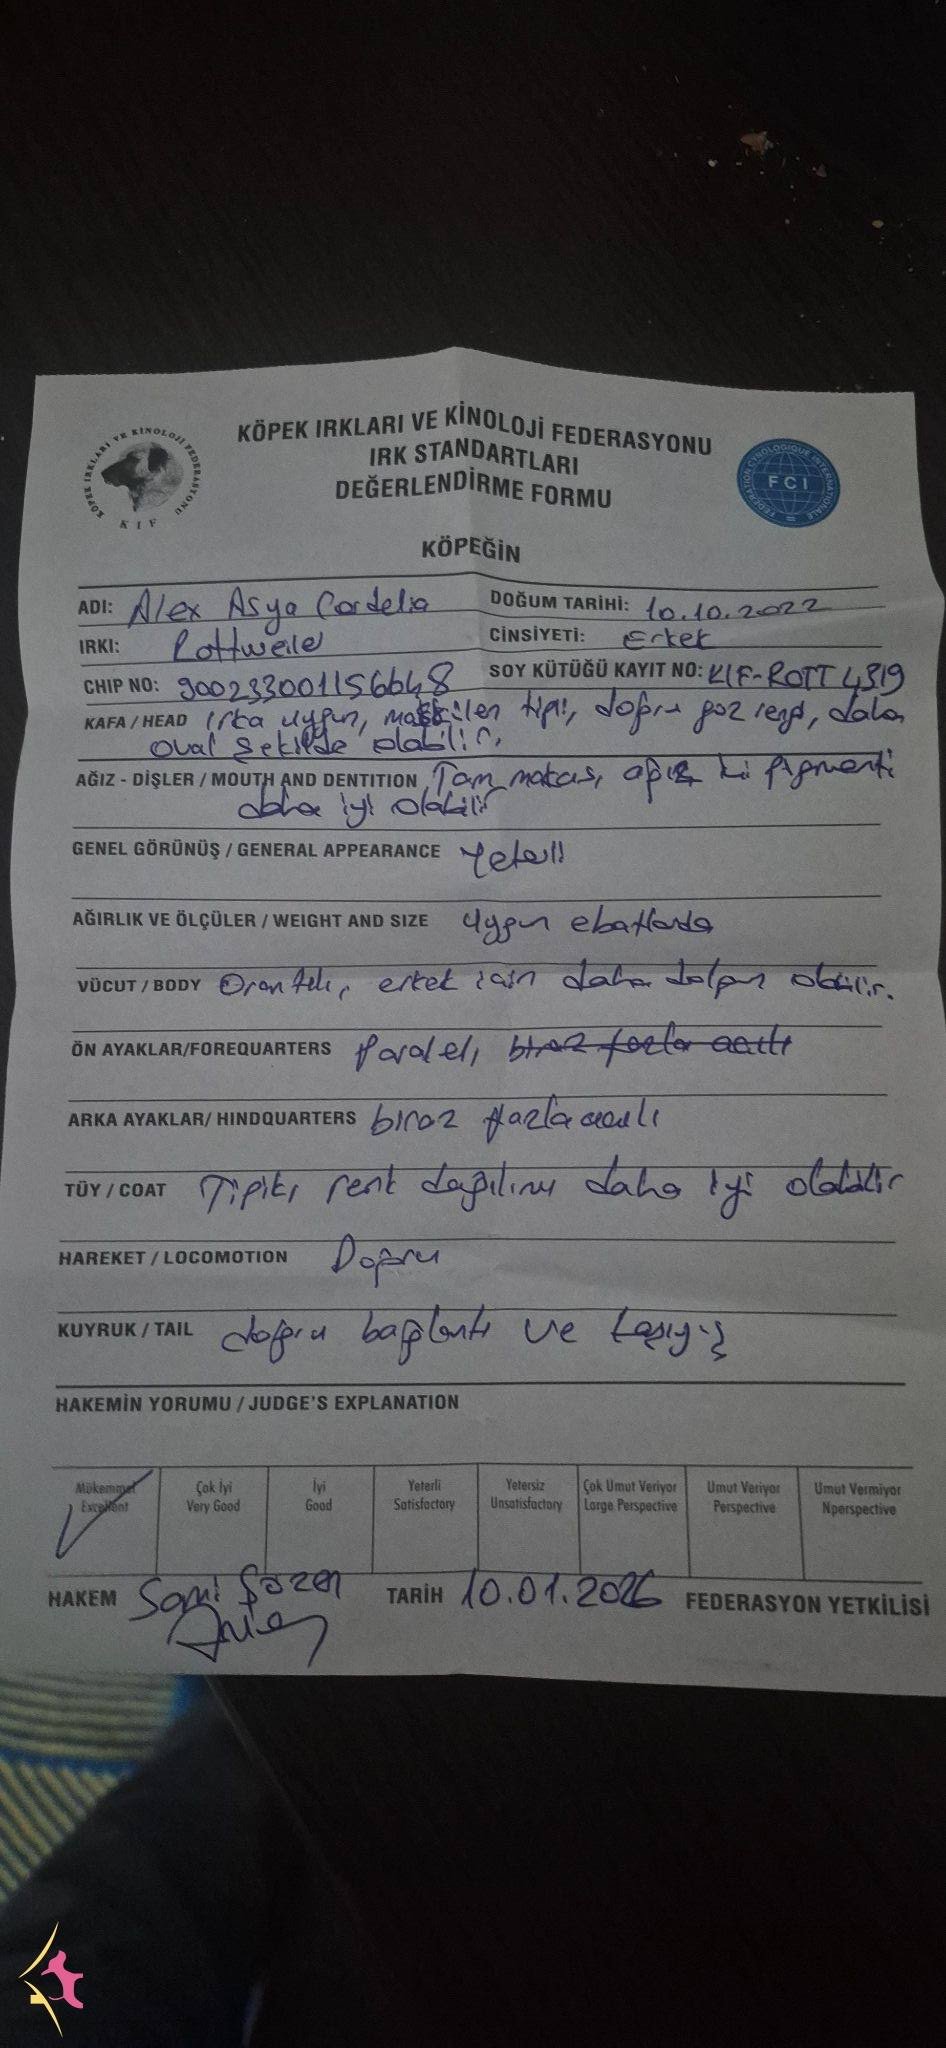 KÖPEK IRKLARI VE KİNOLOJİ FEDERASYONU
IRK STANDARTLARI
DEĞERLENDİRME FORMU
KÖPEK IRKLARI VE KİNOLOJİ FEDERASYONU
KIF
FEDERATION CYNOLOGIQUE INTERNATIONALE
FCI
KÖPEĞİN
ADI: Alex Asya Cordelia DOĞUM TARİHİ: 10.10.2022
IRKI: Rottweiler CİNSİYETİ: Erkek
CHIP NO: 900233001156648 SOY KÜTÜĞÜ KAYIT NO: KIF-ROTT 4319
KAFA / HEAD Irka uygun, tipi, doğru göz rengi, daha
oval şekilde olabilir.
AĞIZ - DİŞLER / MOUTH AND DENTITION Tam, makas, ağız içi pigmenti
daha iyi olabilir
GENEL GÖRÜNÜŞ / GENERAL APPEARANCE Yeterli
AĞIRLIK VE ÖLÇÜLER / WEIGHT AND SIZE Uygun ebatlarda
VÜCUT / BODY Orantılı, erkek için daha dolgun olabilir.
ÖN AYAKLAR/FOREQUARTERS Paralel, biraz fazla açılı
ARKA AYAKLAR/ HINDQUARTERS biraz fazla açılı
TÜY / COAT Tipik, renk dağılımı daha iyi olabilir
HAREKET / LOCOMOTION Doğru
KUYRUK / TAIL doğru bağlantı ve taşıyış
HAKEMİN YORUMU / JUDGE'S EXPLANATION
Mükemmel Çok İyi İyi Yeterli Yetersiz Çok Umut Veriyor Umut Veriyor Umut Vermiyor
Excellent Very Good Good Satisfactory Unsatisfactory Large Perspective Perspective Nperspective
HAKEM Sami Sözen TARİH 10.01.2026 FEDERASYON YETKİLİSİ